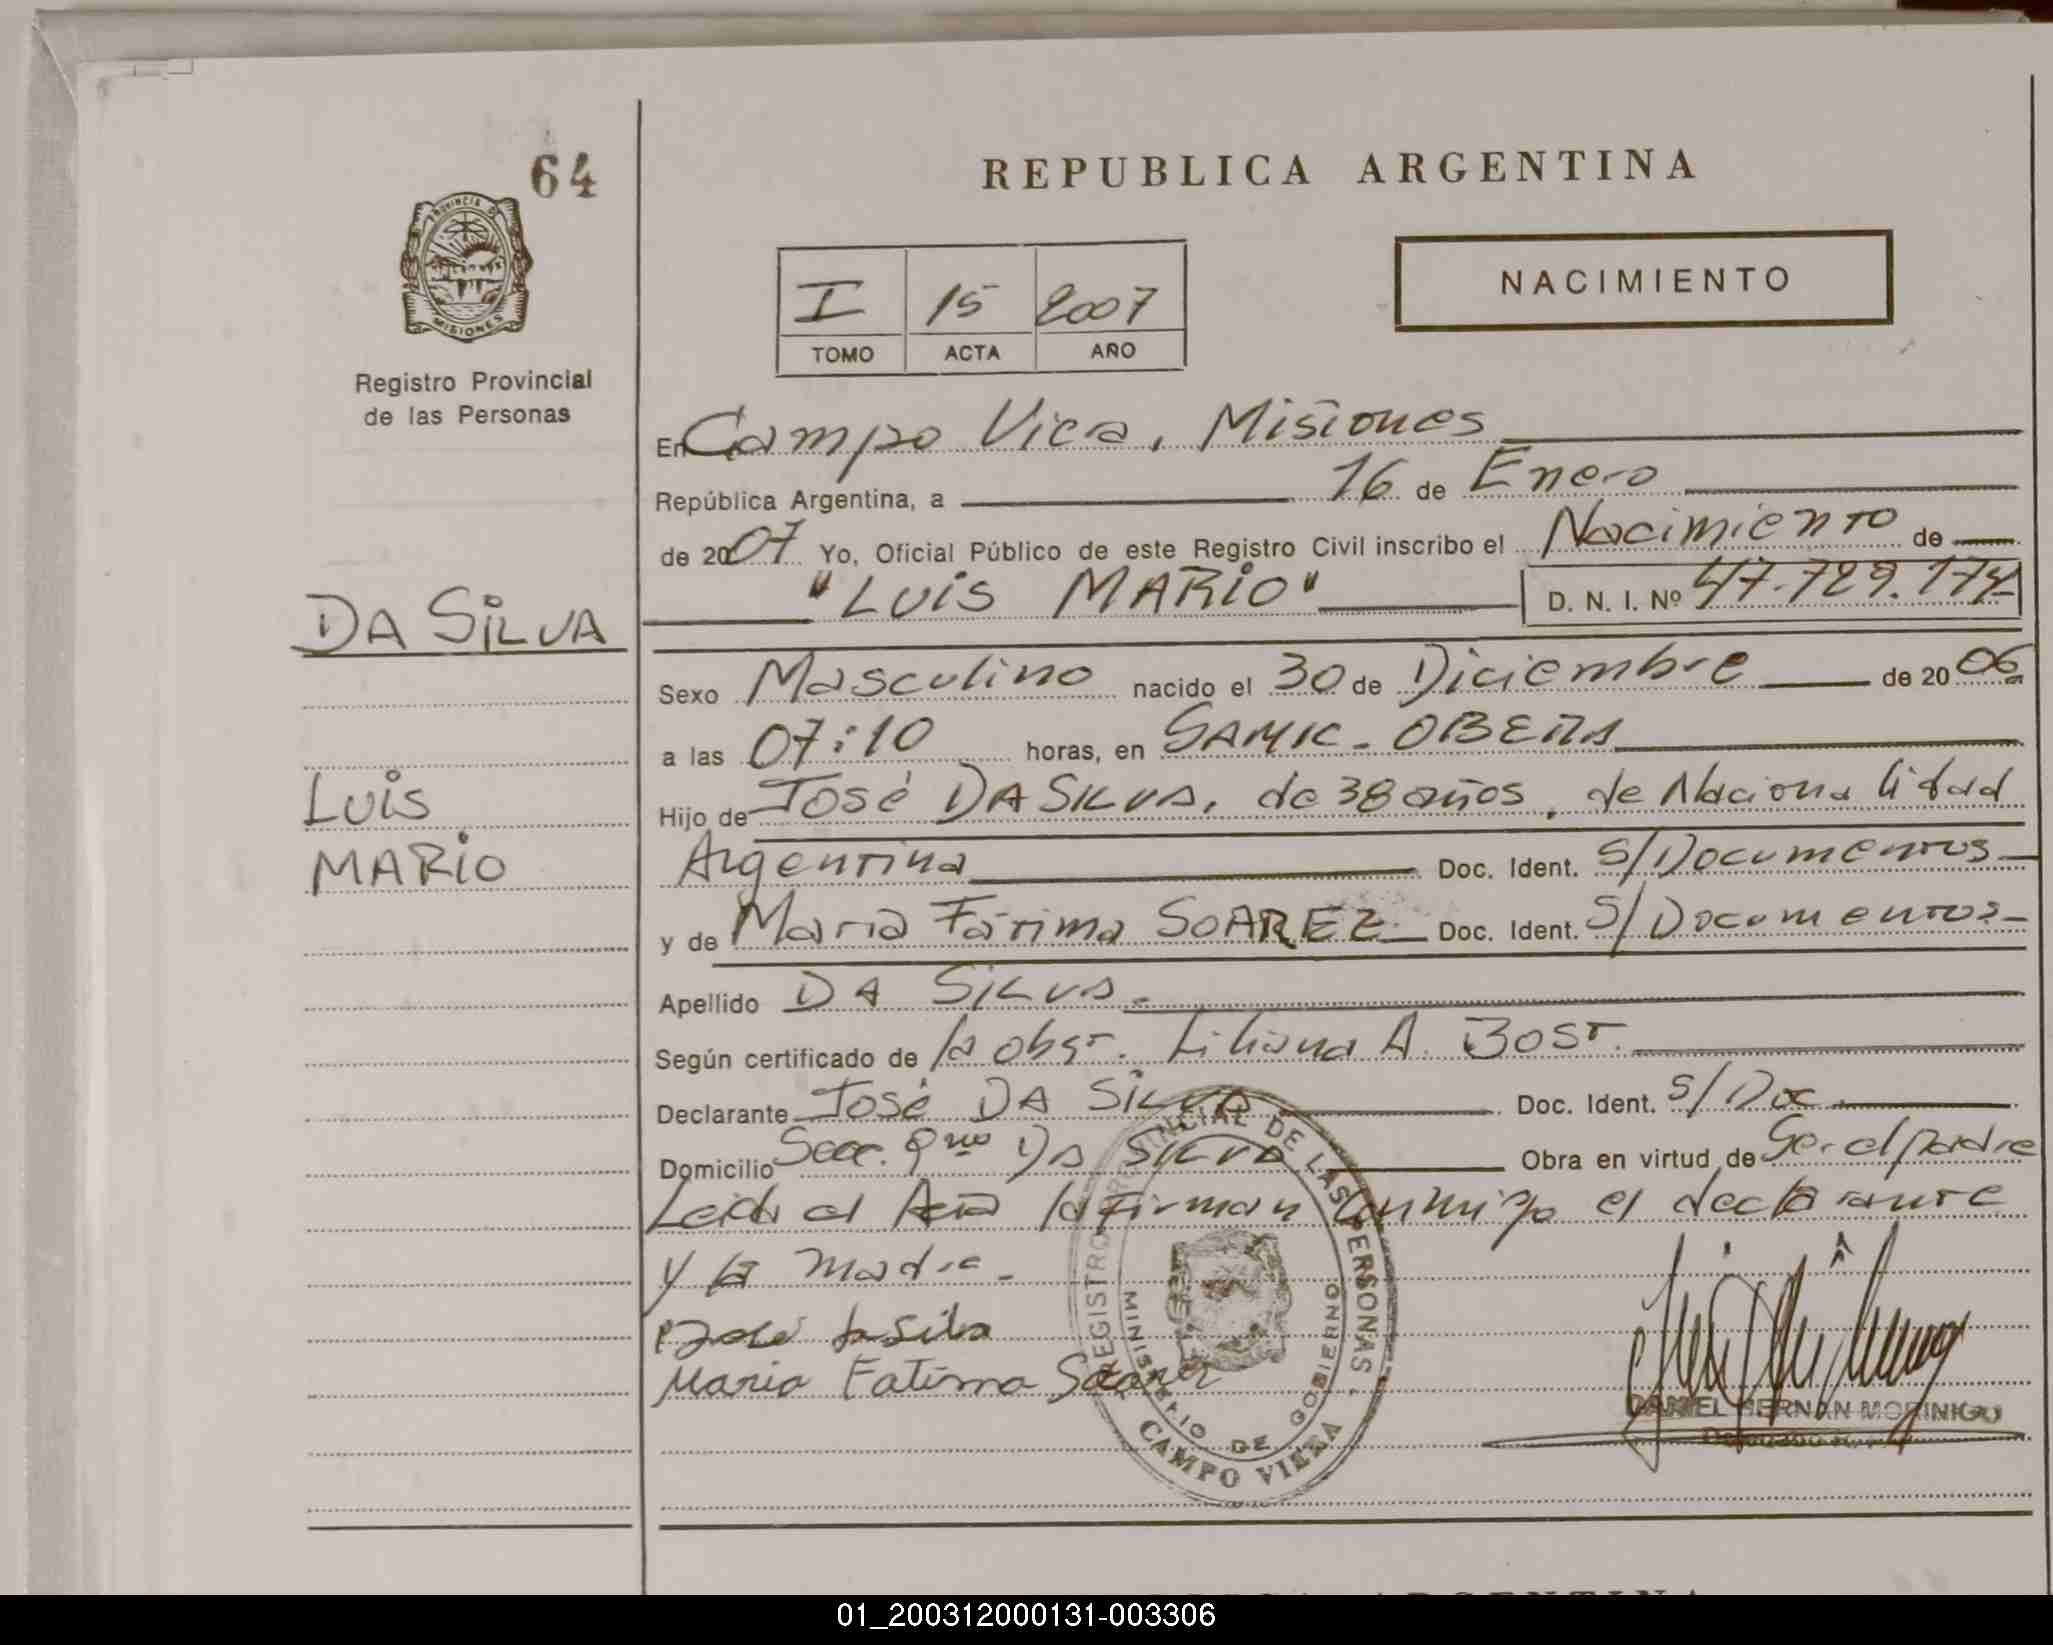 64
PROVINCIA DE
MISIONES
Registro Provincial
de las Personas
REPUBLICA ARGENTINA
NACIMIENTO
I 15 2007
TOMO ACTA AÑO
En Campo Viera, Misiones
República Argentina, a 16 de Enero
de 2007 Yo, Oficial Público de este Registro Civil inscribo el Nacimiento de
"LUIS MARIO" D. N. I. Nº 47.729.174
DA SILVA
Sexo Masculino nacido el 30 de Diciembre de 2006
a las 07:10 horas, en SAMIC - OBERA
LUIS
Hijo de José DA SILVA, de 38 años, de Nacionalidad
MARIO
Argentina Doc. Ident. S/Documentos
y de Maria Fátima SOAREZ Doc. Ident. S/Documentos
Apellido DA SILVA
Según certificado de la obst. Liliana A. BOST.
Declarante José DA SILVA Doc. Ident. S/Doc
Domicilio Secc. 9na DA SILVA Obra en virtud de Ser el padre
Leida el Acta la Firman conmigo el declarante
y la madre.
José da Silva
Maria Fatima Soarez
REGISTRO PROVINCIAL DE LAS PERSONAS
MINISTERIO DE GOBIERNO
CAMPO VIERA
DANIEL HERNAN MORINIGO
01_200312000131-003306